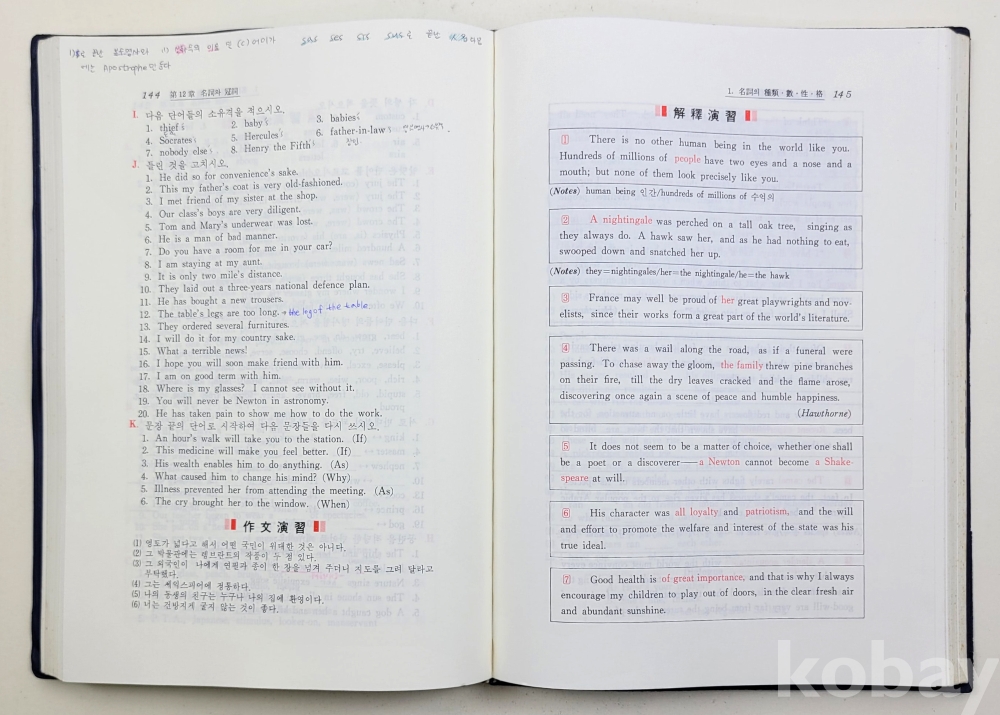 끝난
sas ses sis sus 로 끝난
에는 Apostrophe만 쓴다
144 第12章 名詞와 冠詞
I. 다음 단어들의 소유격을 적으시오.
1. thief's 2. baby's 3. babies'
4. Socrates' 5. Hercules' 6. father-in-law's
7. nobody else's 8. Henry the Fifth's
J. 틀린 것을 고치시오.
1. He did so for convenience's sake.
2. This my father's coat is very old-fashioned.
3. I met friend of my sister at the shop.
4. Our class's boys are very diligent.
5. Tom and Mary's underwear was lost.
6. He is a man of bad manner.
7. Do you have a room for me in your car?
8. I am staying at my aunt.
9. It is only two mile's distance.
10. They laid out a three-years national defence plan.
11. He has bought a new trousers.
12. The table's legs are too long. → the leg of the table
13. They ordered several furnitures.
14. I will do it for my country sake.
15. What a terrible news!
16. I hope you will soon make friend with him.
17. I am on good term with him.
18. Where is my glasses? I cannot see without it.
19. You will never be Newton in astronomy.
20. He has taken pain to show me how to do the work.
K. 문장 끝의 단어로 시작하여 다음 문장들을 다시 쓰시오.
1. An hour's walk will take you to the station. (If)
2. This medicine will make you feel better. (If)
3. His wealth enables him to do anything. (As)
4. What caused him to change his mind? (Why)
5. Illness prevented her from attending the meeting. (As)
6. The cry brought her to the window. (When)
作文演習
(1) 영토가 넓다고 해서 어떤 국민이 위대한 것은 아니다.
(2) 그 박물관에는 렘브란트의 작품이 두 점 있다.
(3) 그 외국인이 나에게 연필과 종이 한 장을 넘겨 주더니 지도를 그려 달라고
부탁했다.
(4) 그는 셰익스피어에 정통하다.
(5) 나의 동생의 친구는 누구나 나의 집에 환영이다.
(6) 너는 건방지게 굴지 않는 것이 좋다.
1. 名詞의 種類·數·性·格 145
解釋演習
1 There is no other human being in the world like you.
Hundreds of millions of people have two eyes and a nose and a
mouth; but none of them look precisely like you.
(Notes) human being 인간/hundreds of millions of 수억의
2 A nightingale was perched on a tall oak tree, singing as
they always do. A hawk saw her, and as he had nothing to eat,
swooped down and snatched her up.
(Notes) they=nightingales/her=the nightingale/he=the hawk
3 France may well be proud of her great playwrights and nov-
elists, since their works form a great part of the world's literature.
4 There was a wail along the road, as if a funeral were
passing. To chase away the gloom, the family threw pine branches
on their fire, till the dry leaves cracked and the flame arose,
discovering once again a scene of peace and humble happiness.
(Hawthorne)
5 It does not seem to be a matter of choice, whether one shall
be a poet or a discoverer—a Newton cannot become a Shake-
speare at will.
6 His character was all loyalty and patriotism, and the will
and effort to promote the welfare and interest of the state was his
true ideal.
7 Good health is of great importance, and that is why I always
encourage my children to play out of doors, in the clear fresh air
and abundant sunshine.
kobay